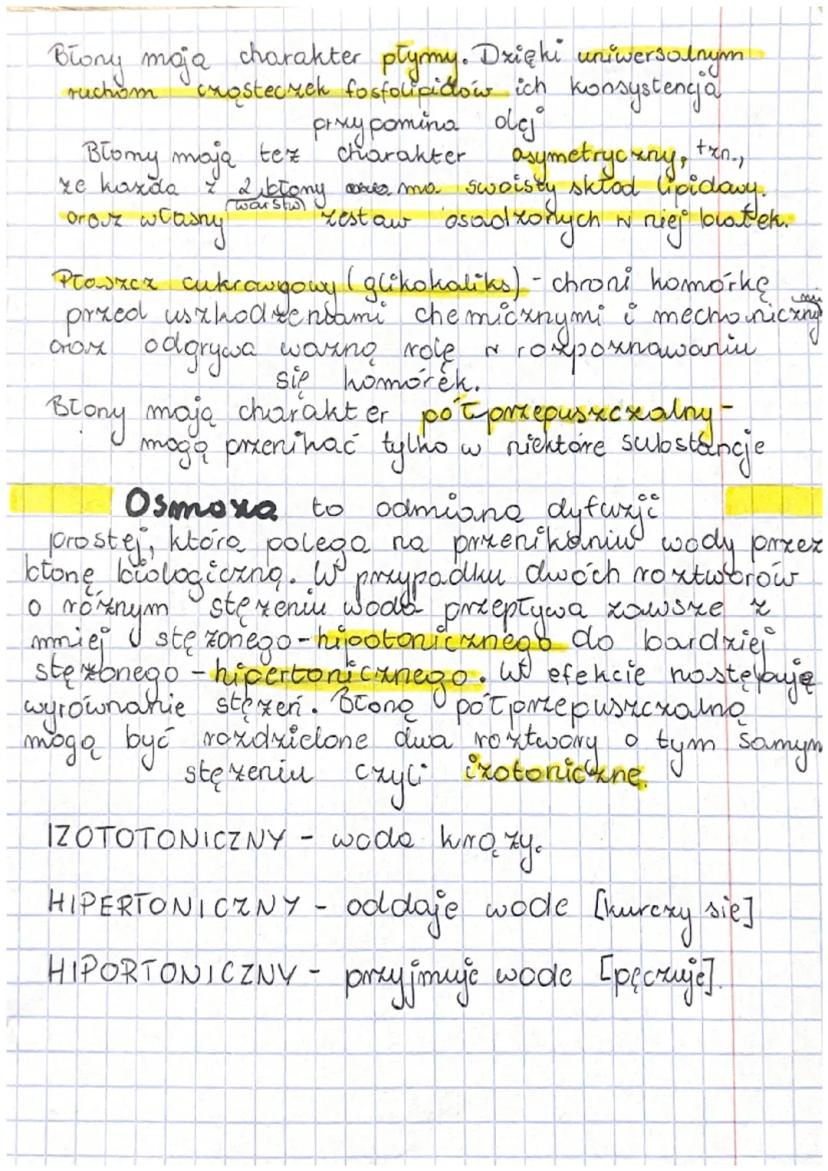 Błony mają charakter płynny. Dzięki uniwersalnym
ruchom cząsteczek fosfolipidów ich konsystencja
przypomina olej
Błony mają też charakter asymetryczny, tzn.,
że każda z 2 błony ma swoisty skład lipidowy.
warstw
oraz własny zestaw osadzonych w niej białek.
Płaszcz cukrowy (glikokaliks) - chroni komórkę
przed uszkodzeniami chemicznymi i mechanicznymi
oraz odgrywa ważną rolę w rozpoznawaniu
się komórek.
Błony mają charakter półprzepuszczalny -
mogą przenikać tylko w niektóre substancje
Osmoza to odmiana dyfuzji
prostej, która polega na przenikaniu wody przez
błonę biologiczną. W przypadku dwóch roztworów
o różnym stężeniu woda przepływa zawsze z
mniej stężonego - hipotonicznego do bardziej
stężonego - hipertonicznego. W efekcie następuje
wyrównanie stężeń. Błoną półprzepuszczalną
mogą być rozdzielone dwa roztwory o tym samym
stężeniu czyli izotoniczne.
IZOTOTONICZNY - woda krąży.
HIPERTONICZNY - oddaje wode [kurczy się]
HIPORTONICZNY - przyjmuje wode [pęcznieje].